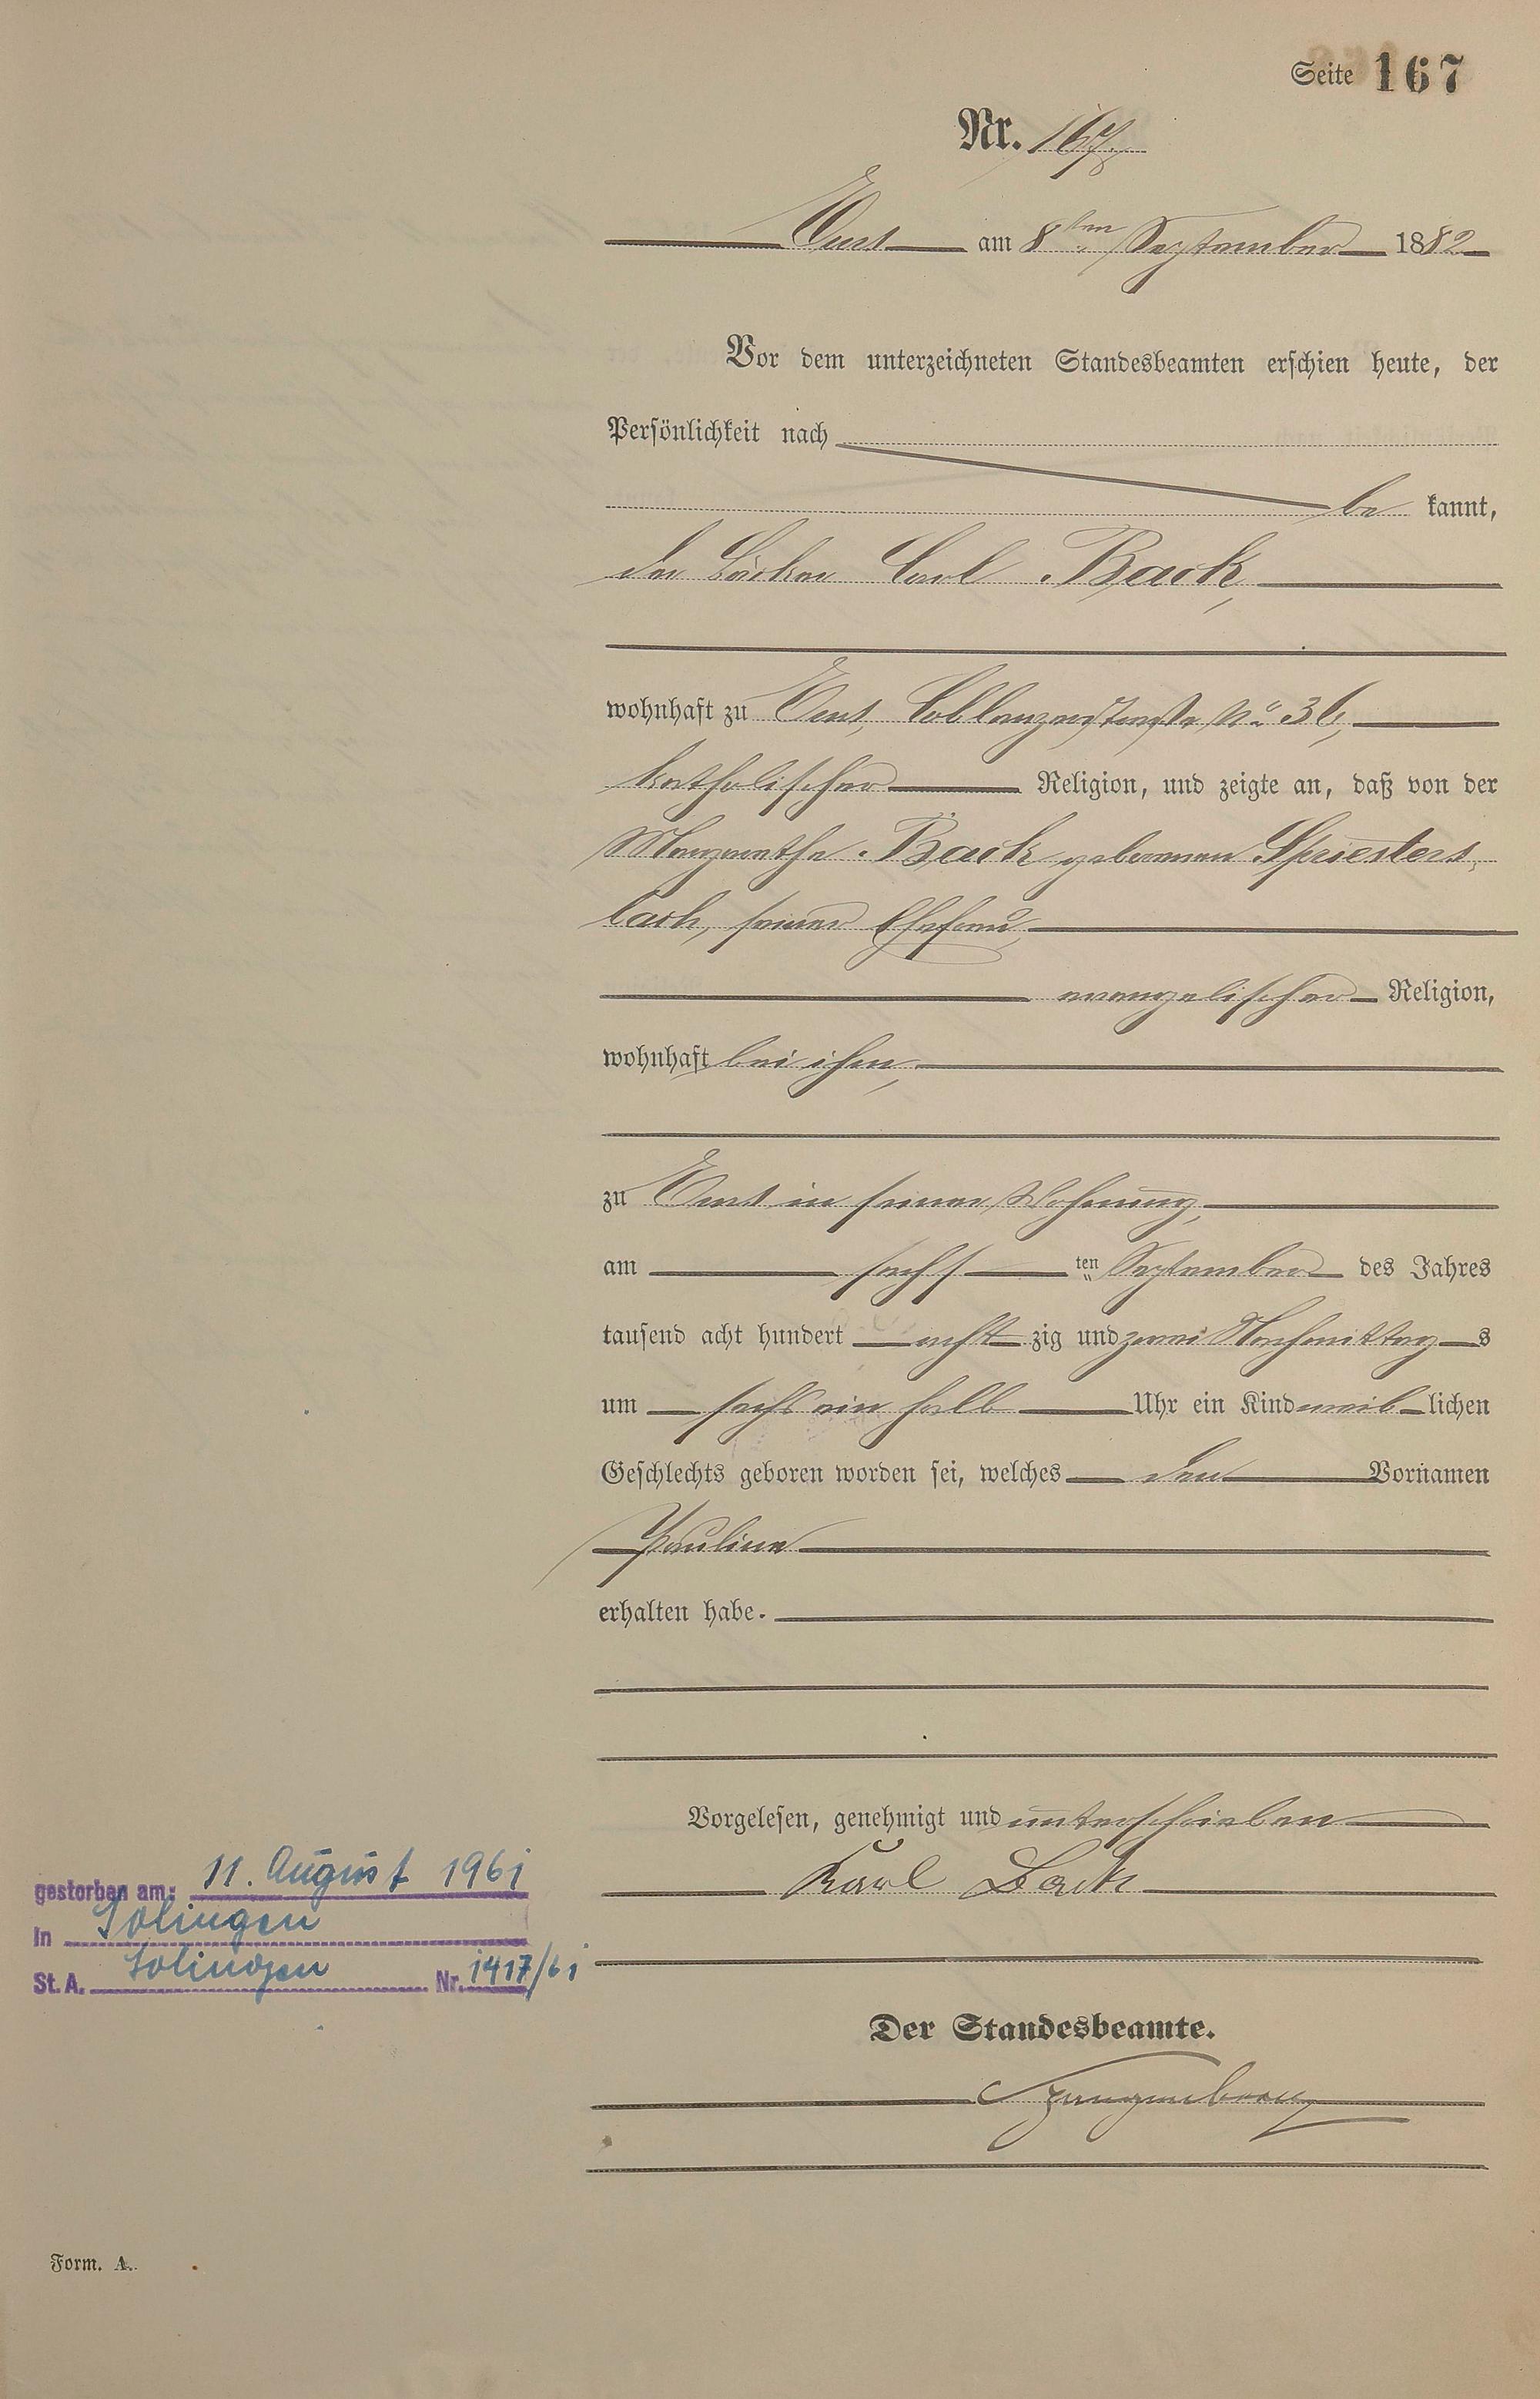 Seite 167
Nr. 167.
Ems am 8ten September 1882
Vor dem unterzeichneten Standesbeamten erschien heute, der
Persönlichkeit nach
be kannt,
der Bäcker Carl Back,
wohnhaft zu Ems, Coblenzerstraße No. 36,
katholischer Religion, und zeigte an, daß von der
Margarethe Back geborenen Spriesters-
bach, seiner Ehefrau,
evangelischer Religion,
wohnhaft bei ihm,
zu Ems in seiner Wohnung,
am sechs ten September des Jahres
tausend acht hundert acht zig und zwei Nachmittag s
um sechs ein halb Uhr ein Kind weib lichen
Geschlechts geboren worden sei, welches den Vornamen
Pauline
erhalten habe.
Vorgelesen, genehmigt und unterschrieben
Karl Back
gestorben am: 11. August 1961
in Solingen
St. A. Solingen Nr. 1417/61
Der Standesbeamte.
Form. A.